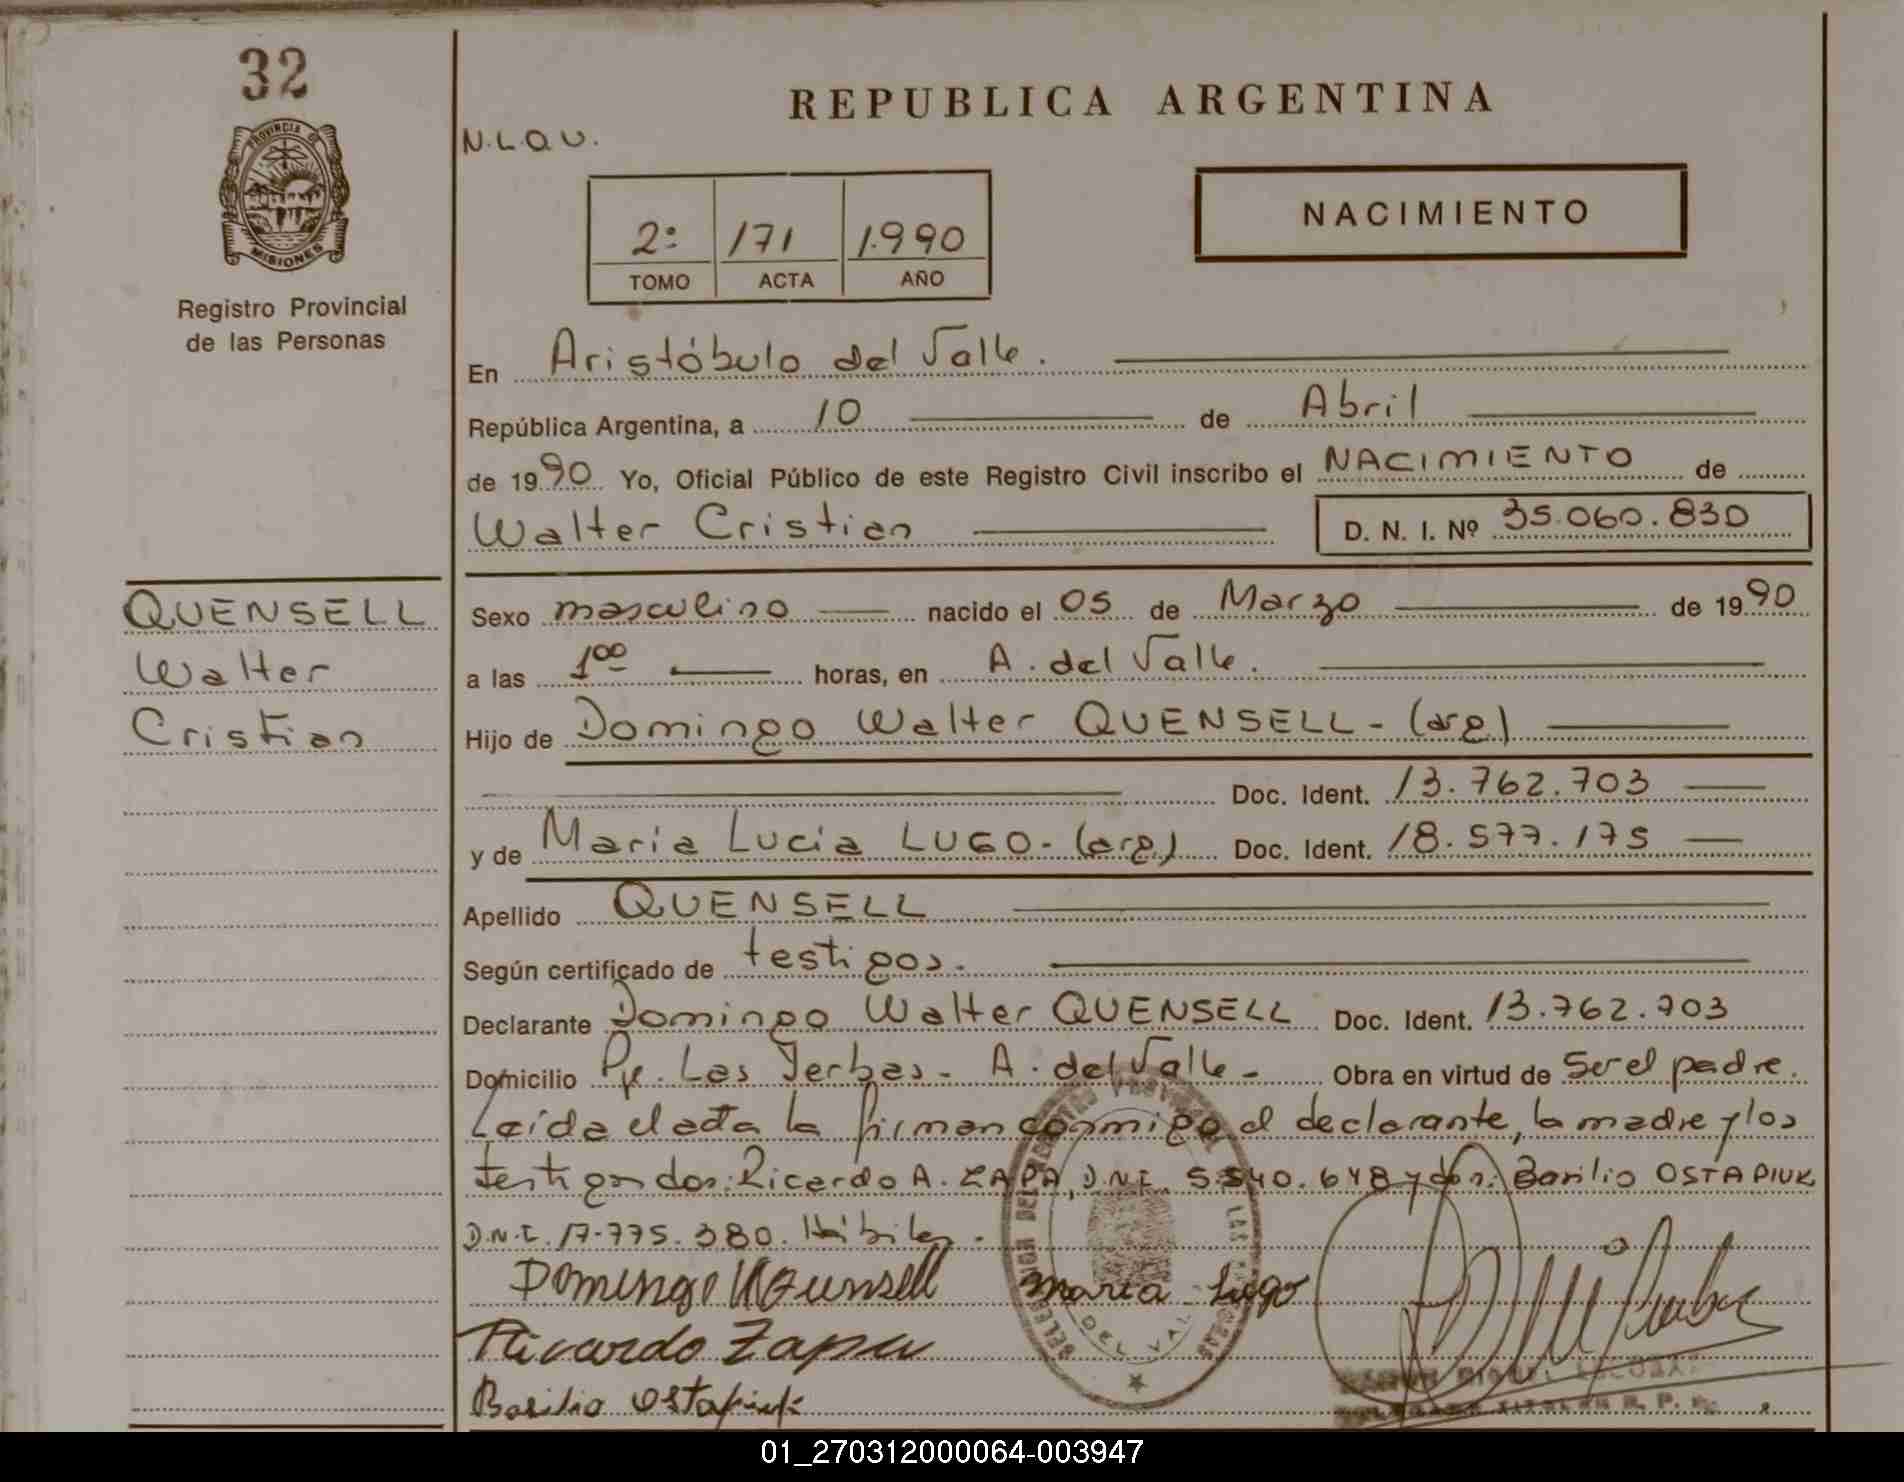 32
PROVINCIA DE
MISIONES
Registro Provincial
de las Personas
QUENSELL
Walter
Cristian
REPUBLICA ARGENTINA
N.L.Q.U.
NACIMIENTO
2º 171 1.990
TOMO ACTA AÑO
En Aristóbulo del Valle.
República Argentina, a 10 de Abril
de 1990 Yo, Oficial Público de este Registro Civil inscribo el NACIMIENTO de
Walter Cristian D. N. I. Nº 35.060.830
Sexo masculino nacido el 05 de Marzo de 1990
a las 1 00 horas, en A. del Valle.
Hijo de Domingo Walter QUENSELL - (arg)
Doc. Ident. 13.762.703
y de Maria Lucia LUGO - (arg) Doc. Ident. 18.577.175
Apellido QUENSELL
Según certificado de testigos.
Declarante Domingo Walter QUENSELL Doc. Ident. 13.762.703
Domicilio Pje. Las Yerbas - A. del Valle - Obra en virtud de Ser el padre.
Leída el acta la firman conmigo el declarante, la madre y los
testigos don: Ricardo A. ZAPA, D.N.I. 5.540.648 y don: Basilio OSTAPIUK
D.N.I. 17.775.380. Hábiles.
Domingo W Quensell Maria Lugo
Ricardo Zapa
Basilio Ostapiuk
DEL VAL
01_270312000064-003947